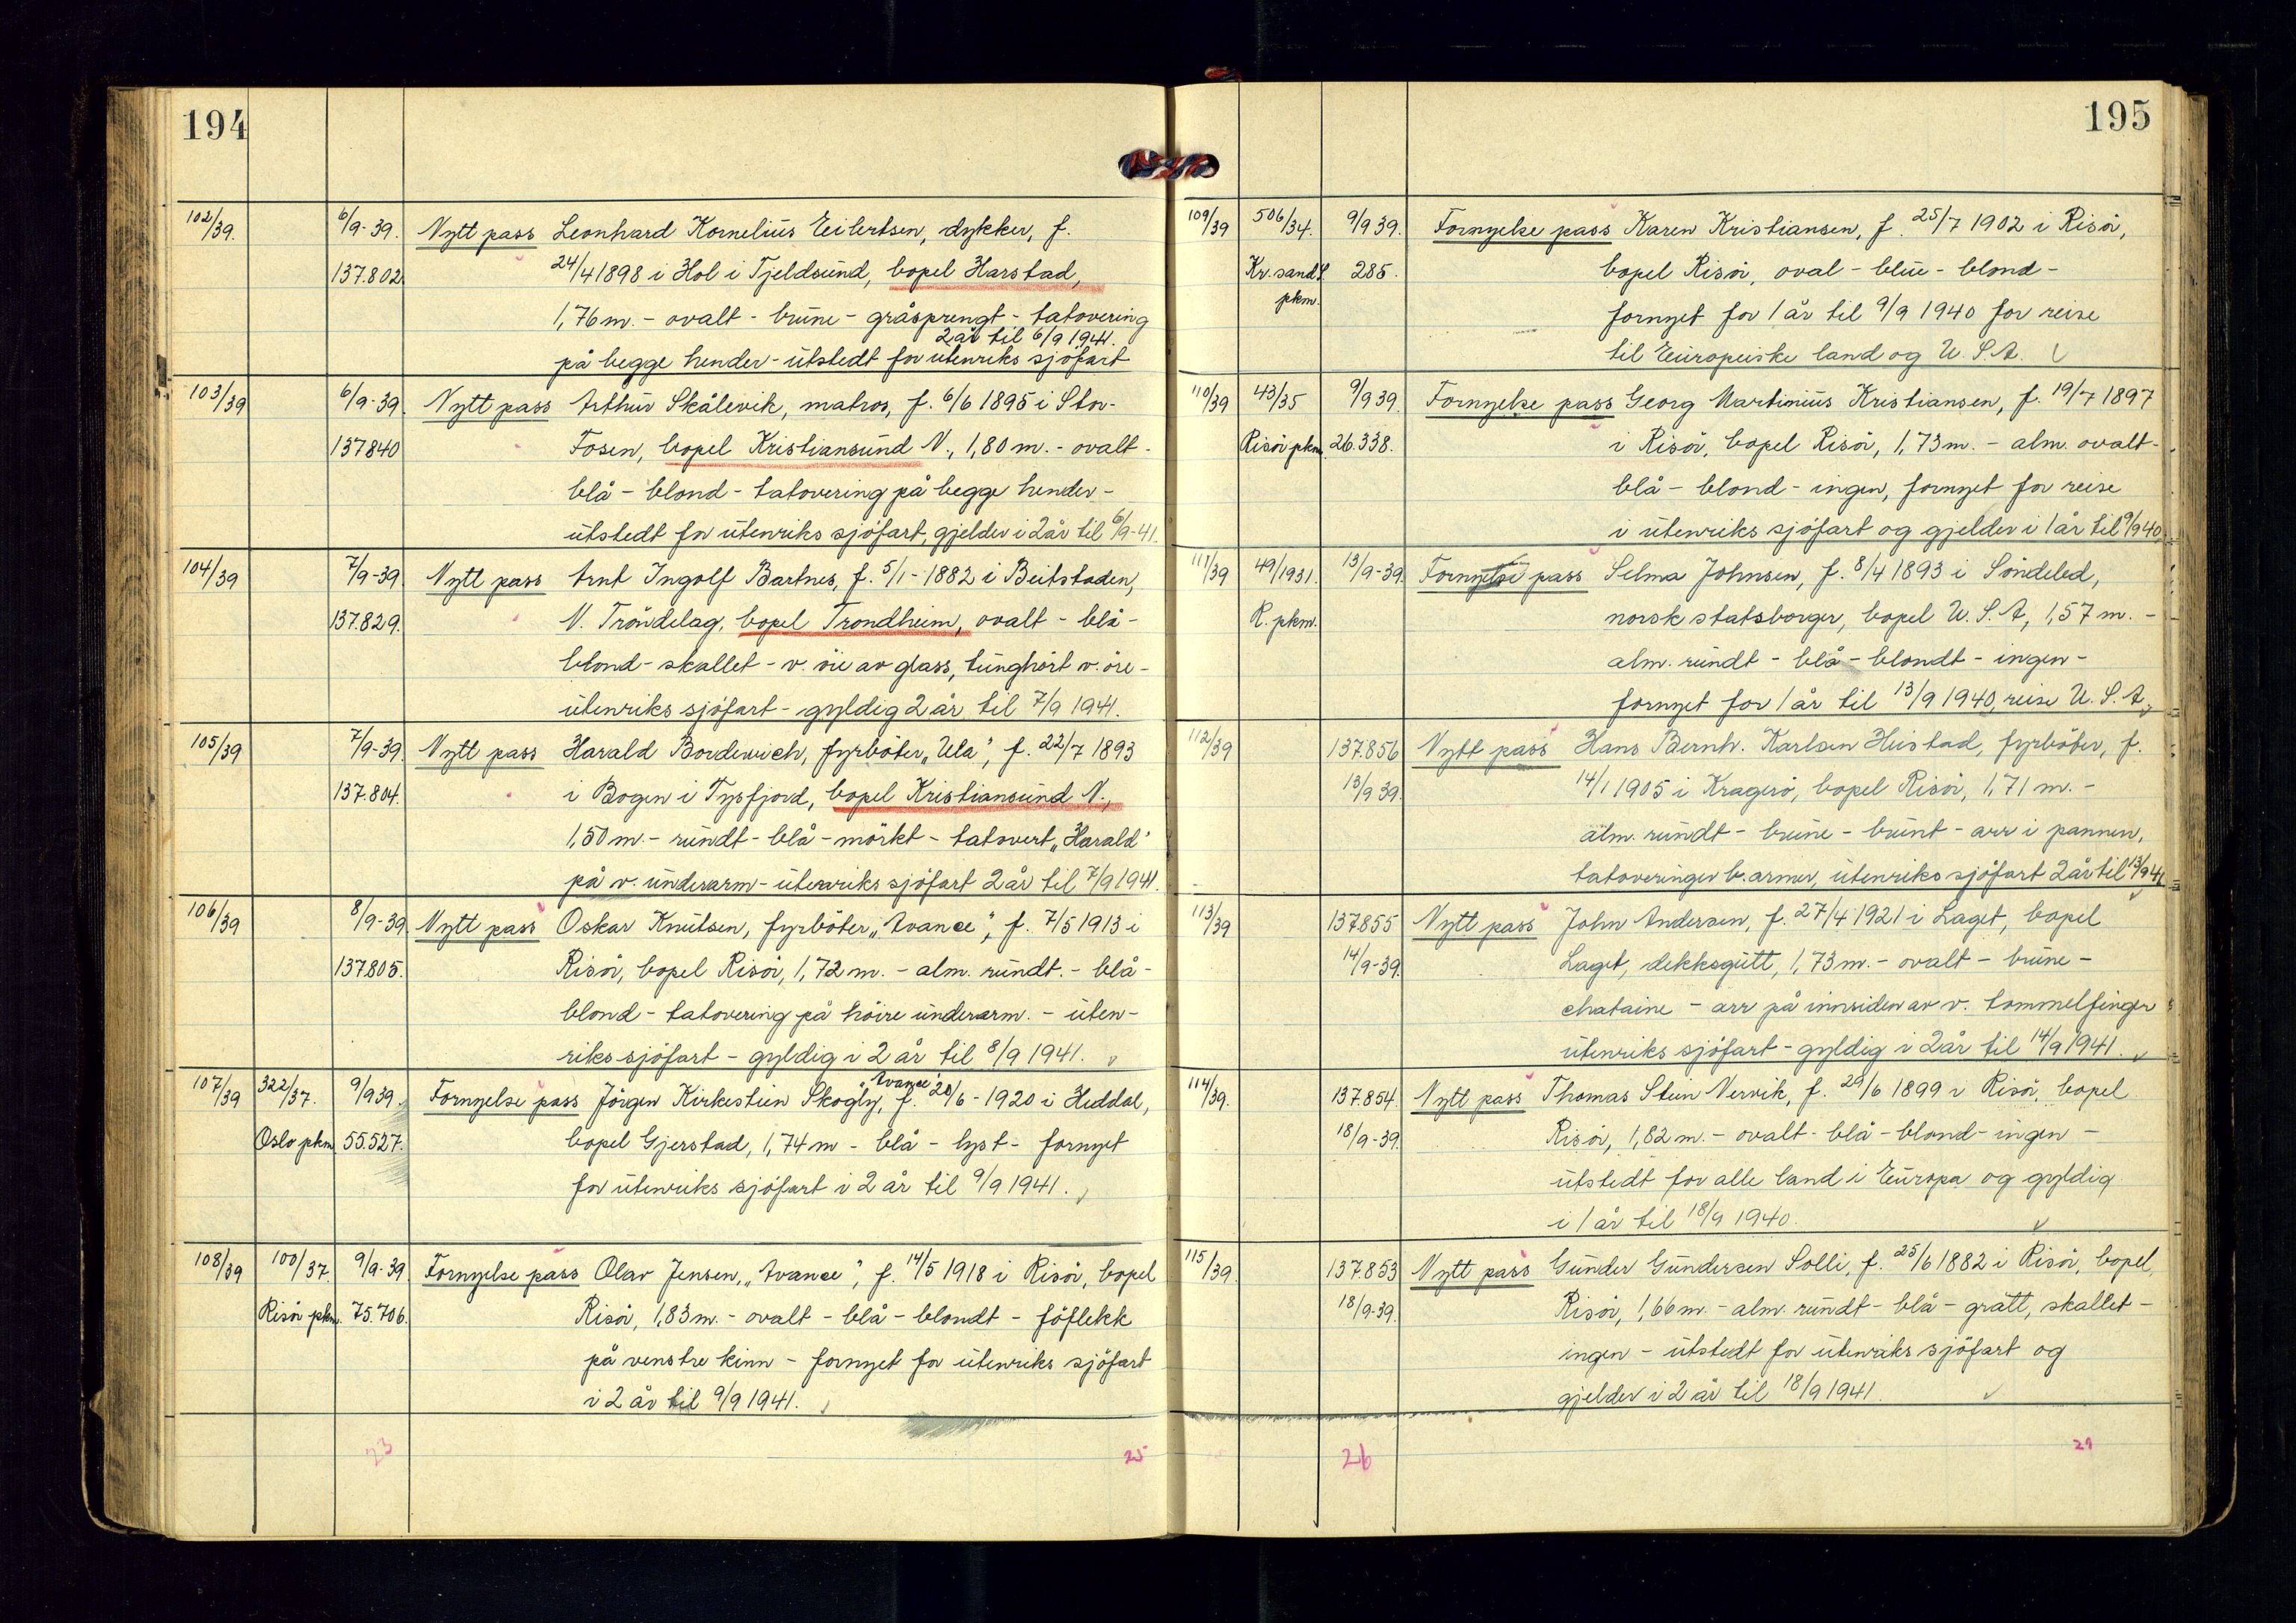 194
102/39. 6/9-39. Nytt pass Leonhard Kornelius Eilertsen, dykker, f.
137.802. 24/4 1898 i Hol i Tjeldsund, bopel Harstad,
1,76 m. - ovalt - brune - gråsprengt - tatovering
2 år til 6/9 1941.
på begge hender - utstedt for utenriks sjöfart
103/39 6/9-39. Nytt pass Arthur Skålevik, matros, f. 6/6 1895 i Stor-
137840 Fosen, bopel Kristiansund N., 1,80 m. - ovalt -
blå - blond - tatovering på begge hender -
utstedt for utenriks sjöfart, gjelder i 2 år til 6/9-41.
104/39 7/9-39. Nytt pass Arnt Ingolf Bartnes, f. 5/1-1882 i Beitstaden,
137.829. N. Tröndelag, bopel Trondheim, ovalt - blå -
blond - skallet - v. öie av glass, tunghört v. öre -
utenriks sjöfart - gyldig 2 år til 7/9 1941.
105/39 7/9-39. Nytt pass Harald Borderwich, fyrböter „Ula", f. 22/7 1893
137.804. i Bogen i Tysfjord, bopel Kristiansund N.,
1,50 m. - rundt - blå - mörkt - tatovert „Harald"
på v. underarm - utenriks sjöfart 2 år til 7/9 1941.
106/39 8/9-39. Nytt pass Oskar Knutsen, fyrböter „Avance", f. 7/5 1913 i
137805. Risör, bopel Risör, 1,72 m. - alm. rundt. - blå -
blond - tatovering på höire underarm. - uten-
riks sjöfart - gyldig i 2 år til 8/9 1941.
„Avance"
107/39 322/37. 9/9 39. Fornyelse pass Jörgen Kirkestuen Skogly, f. 20/6-1920 i Heddal,
Oslo pkm 55.527. bopel Gjerstad, 1,74 m - blå - lyst - fornyet
for utenriks sjöfart i 2 år til 9/9 1941.
108/39 100/37. 9/9-39. Fornyelse pass Olav Jensen, „Avance", f. 14/5 1918 i Risör, bopel
Risör pkm. 75.706. Risör, 1,83 m. - ovalt - blå - blondt - föflekk
på venstre kinn - fornyet for utenriks sjöfart
i 2 år til 9/9 1941.
23 25
195
109/39 506/34. 9/9 39. Fornyelse pass Karen Kristiansen, f. 25/7 1902 i Risör,
Kr.sand S. 285. bopel Risör, oval - blue - blond -
pkm. fornyet for 1 år til 9/9 1940 for reise
til Europeiske land og U.S.A.
110/39 43/35 9/9 39. Fornyelse pass Georg Martinius Kristiansen, f. 19/7 1897
Risör pkm. 26.338. i Risör, bopel Risör, 1,73 m. - alm. ovalt -
blå - blond - ingen, fornyet for reise
i utenriks sjöfart og gjelder i 1 år til 9/9 40
111/39 49/1931. 13/9-39. Fornyelse pass Selma Johnsen, f. 8/4 1893 i Söndeled,
R. pkm. norsk statsborger, bopel U.S.A, 1,57 m. -
alm. rundt - blå - blondt - ingen -
fornyet for 1 år til 13/9 1940, reise U.S.A.
112/39 137.856 Nytt pass Hans Bernh. Karlsen Heistad, fyrböter, f.
13/9 39. 14/1 1905 i Kragerö, bopel Risör, 1,71 m. -
alm. rundt - brune - brunt - arr i pannen,
tatoveringer b. armer, utenriks sjöfart 2 år til 13/9 41
113/39 137855 Nytt pass John Andersen, f. 27/4 1921 i Laget, bopel
14/9-39. Laget, dekksgutt, 1,73 m. - ovalt - brune -
chataine - arr på innsiden av v. tommelfinger
utenriks sjöfart - gyldig i 2 år til 14/9 1941.
114/39. 137.854. Nytt pass Thomas Stein Vervik, f. 29/6 1899 i Risör, bopel
18/9-39. Risör, 1,82 m. - ovalt - blå - blond - ingen -
utstedt for alle land i Europa og gyldig
i 1 år til 18/9 1940.
115/39. 137.853 Nytt pass Gunder Gundersen Solli, f. 25/6 1882 i Risör, bopel,
18/9-39. Risör, 1,66 m. - alm. rundt - blå - grått, skallet -
ingen - utstedt for utenriks sjöfart og
gjelder i 2 år til 18/9 1941.
26